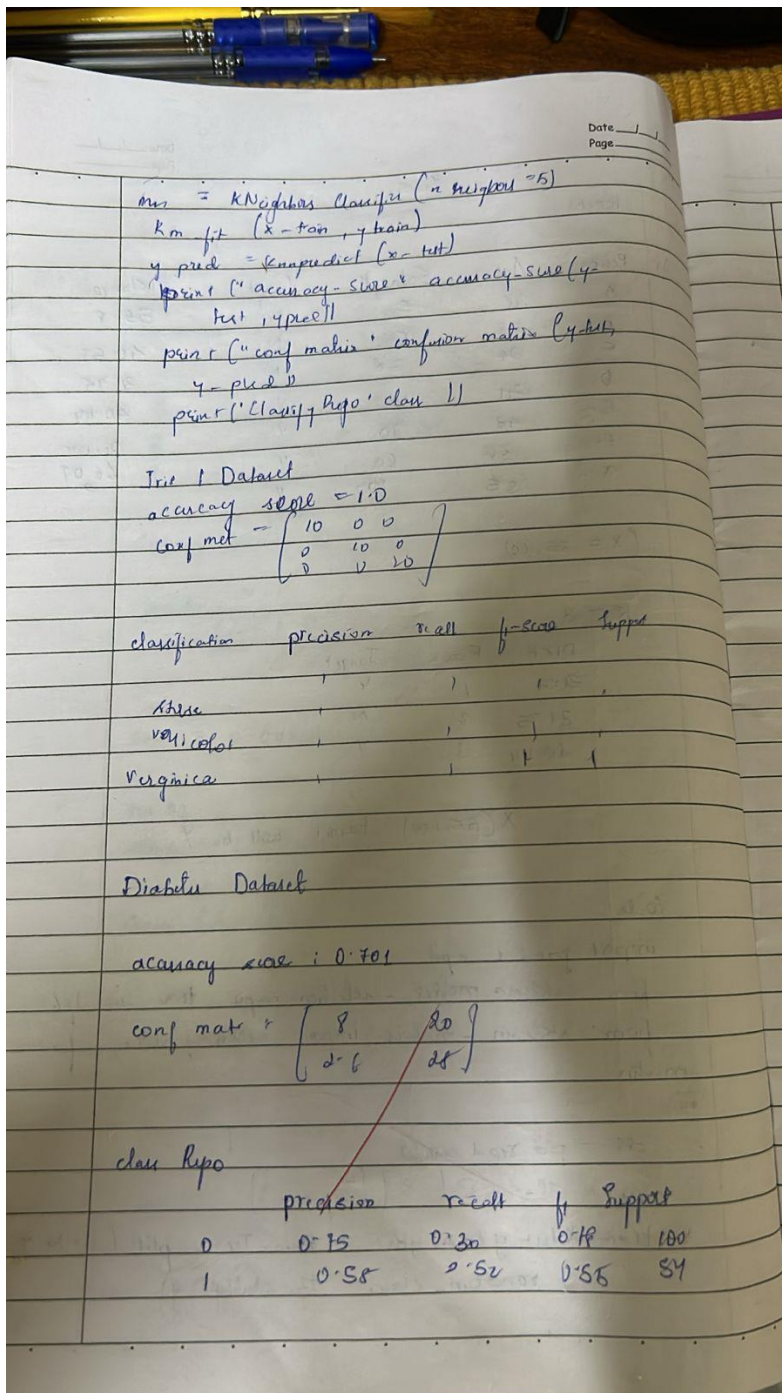 Date
Page
= KNeighbors Classifier (n neighbors =5)
fit (x-train, y train)
y pred = knnpredict (x-test)
print ("accuracy-score" accuracy-score (y-
test, ypred))
print ("conf matrix" confusion matrix (y-test,
y-pred))
print ('Classify Repo' class ))
Dataset
accuracy score = 1.0
conf met = [10 0 0
0 10 0
0 0 20]
classification precision recall f1-score Support
versicolor
Verginica
Diabetes Dataset
accuracy score : 0.701
conf mat = [8 20
26 28]
class Repo
precision recall f1 Support
0 0.75 100
1 0.58 0.52 0.55 54